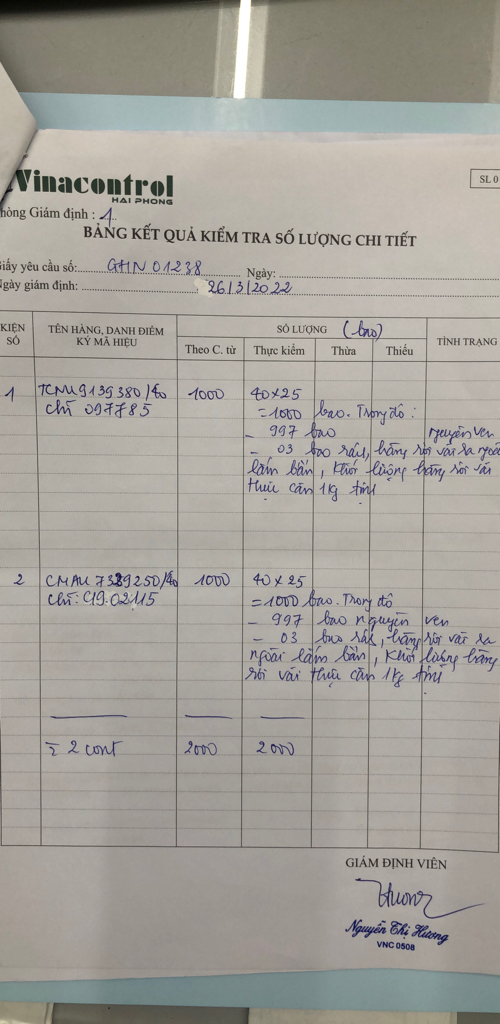 Vinacontrol
HAI PHONG
SL 0
hòng Giám định : 1
BẢNG KẾT QUẢ KIỂM TRA SỐ LƯỢNG CHI TIẾT
Giấy yêu cầu số: GHN 01238 Ngày:
Ngày giám định: 26/3/2022
KIỆN SỐ
TÊN HÀNG, DANH ĐIỂM KÝ MÃ HIỆU
SỐ LƯỢNG (bao)
TÌNH TRẠNG
Theo C. từ Thực kiểm Thừa Thiếu
1 TCNU9139380/40 1000 40 x 25
chì 097785 = 1000 bao. Trong đó :
- 997 bao nguyên vẹn
- 03 bao rách, hàng rơi vãi ra ngoài
lấm bẩn, khối lượng hàng rơi vãi
thực cân 1kg tịnh
2 CMAU 7329250/40 1000 40 x 25
chì: C1902115 = 1000 bao. Trong đó
- 997 bao nguyên vẹn
- 03 bao rách, hàng rơi vãi ra
ngoài lấm bẩn, khối lượng hàng
rơi vãi thực cân 1kg tịnh
Σ 2 cont 2000 2000
GIÁM ĐỊNH VIÊN
Hương
Nguyễn Thị Hương
VNC 0508